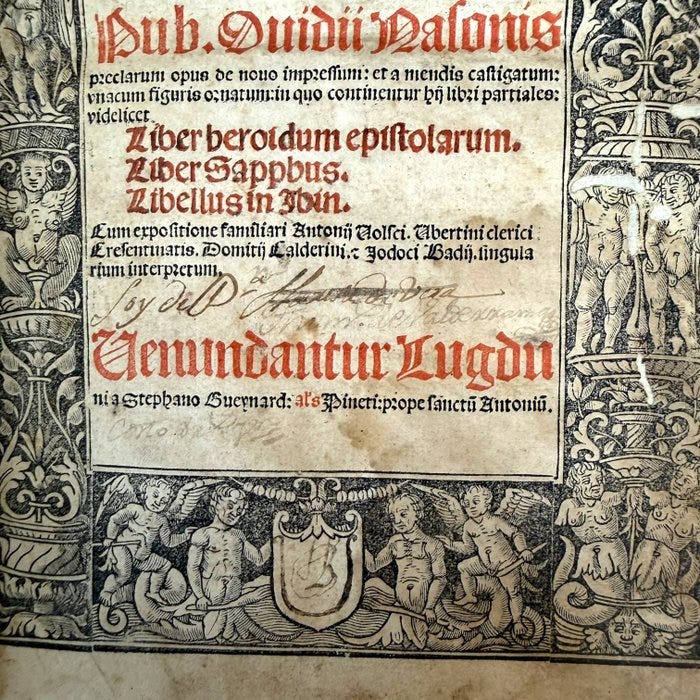 Pub. Ouidii Nasonis
preclarum opus de nouo impressum: et a mendis castigatum:
vnacum figuris ornatum: in quo continentur hij libri partiales:
videlicet
Liber heroidum epistolarum.
Liber Sapphus.
Libellus in Ibin.
Cum expositione familiari Antonij Uolsci. Ubertini clerici
Cresentinatis. Domitij Calderini. ⁊ Jodoci Badij. singula
rium interpretum.
Soy del
Uenundantur Lugdu
ni a Stephano Gueynard: al's Pineti: prope sanctū Antoniū.